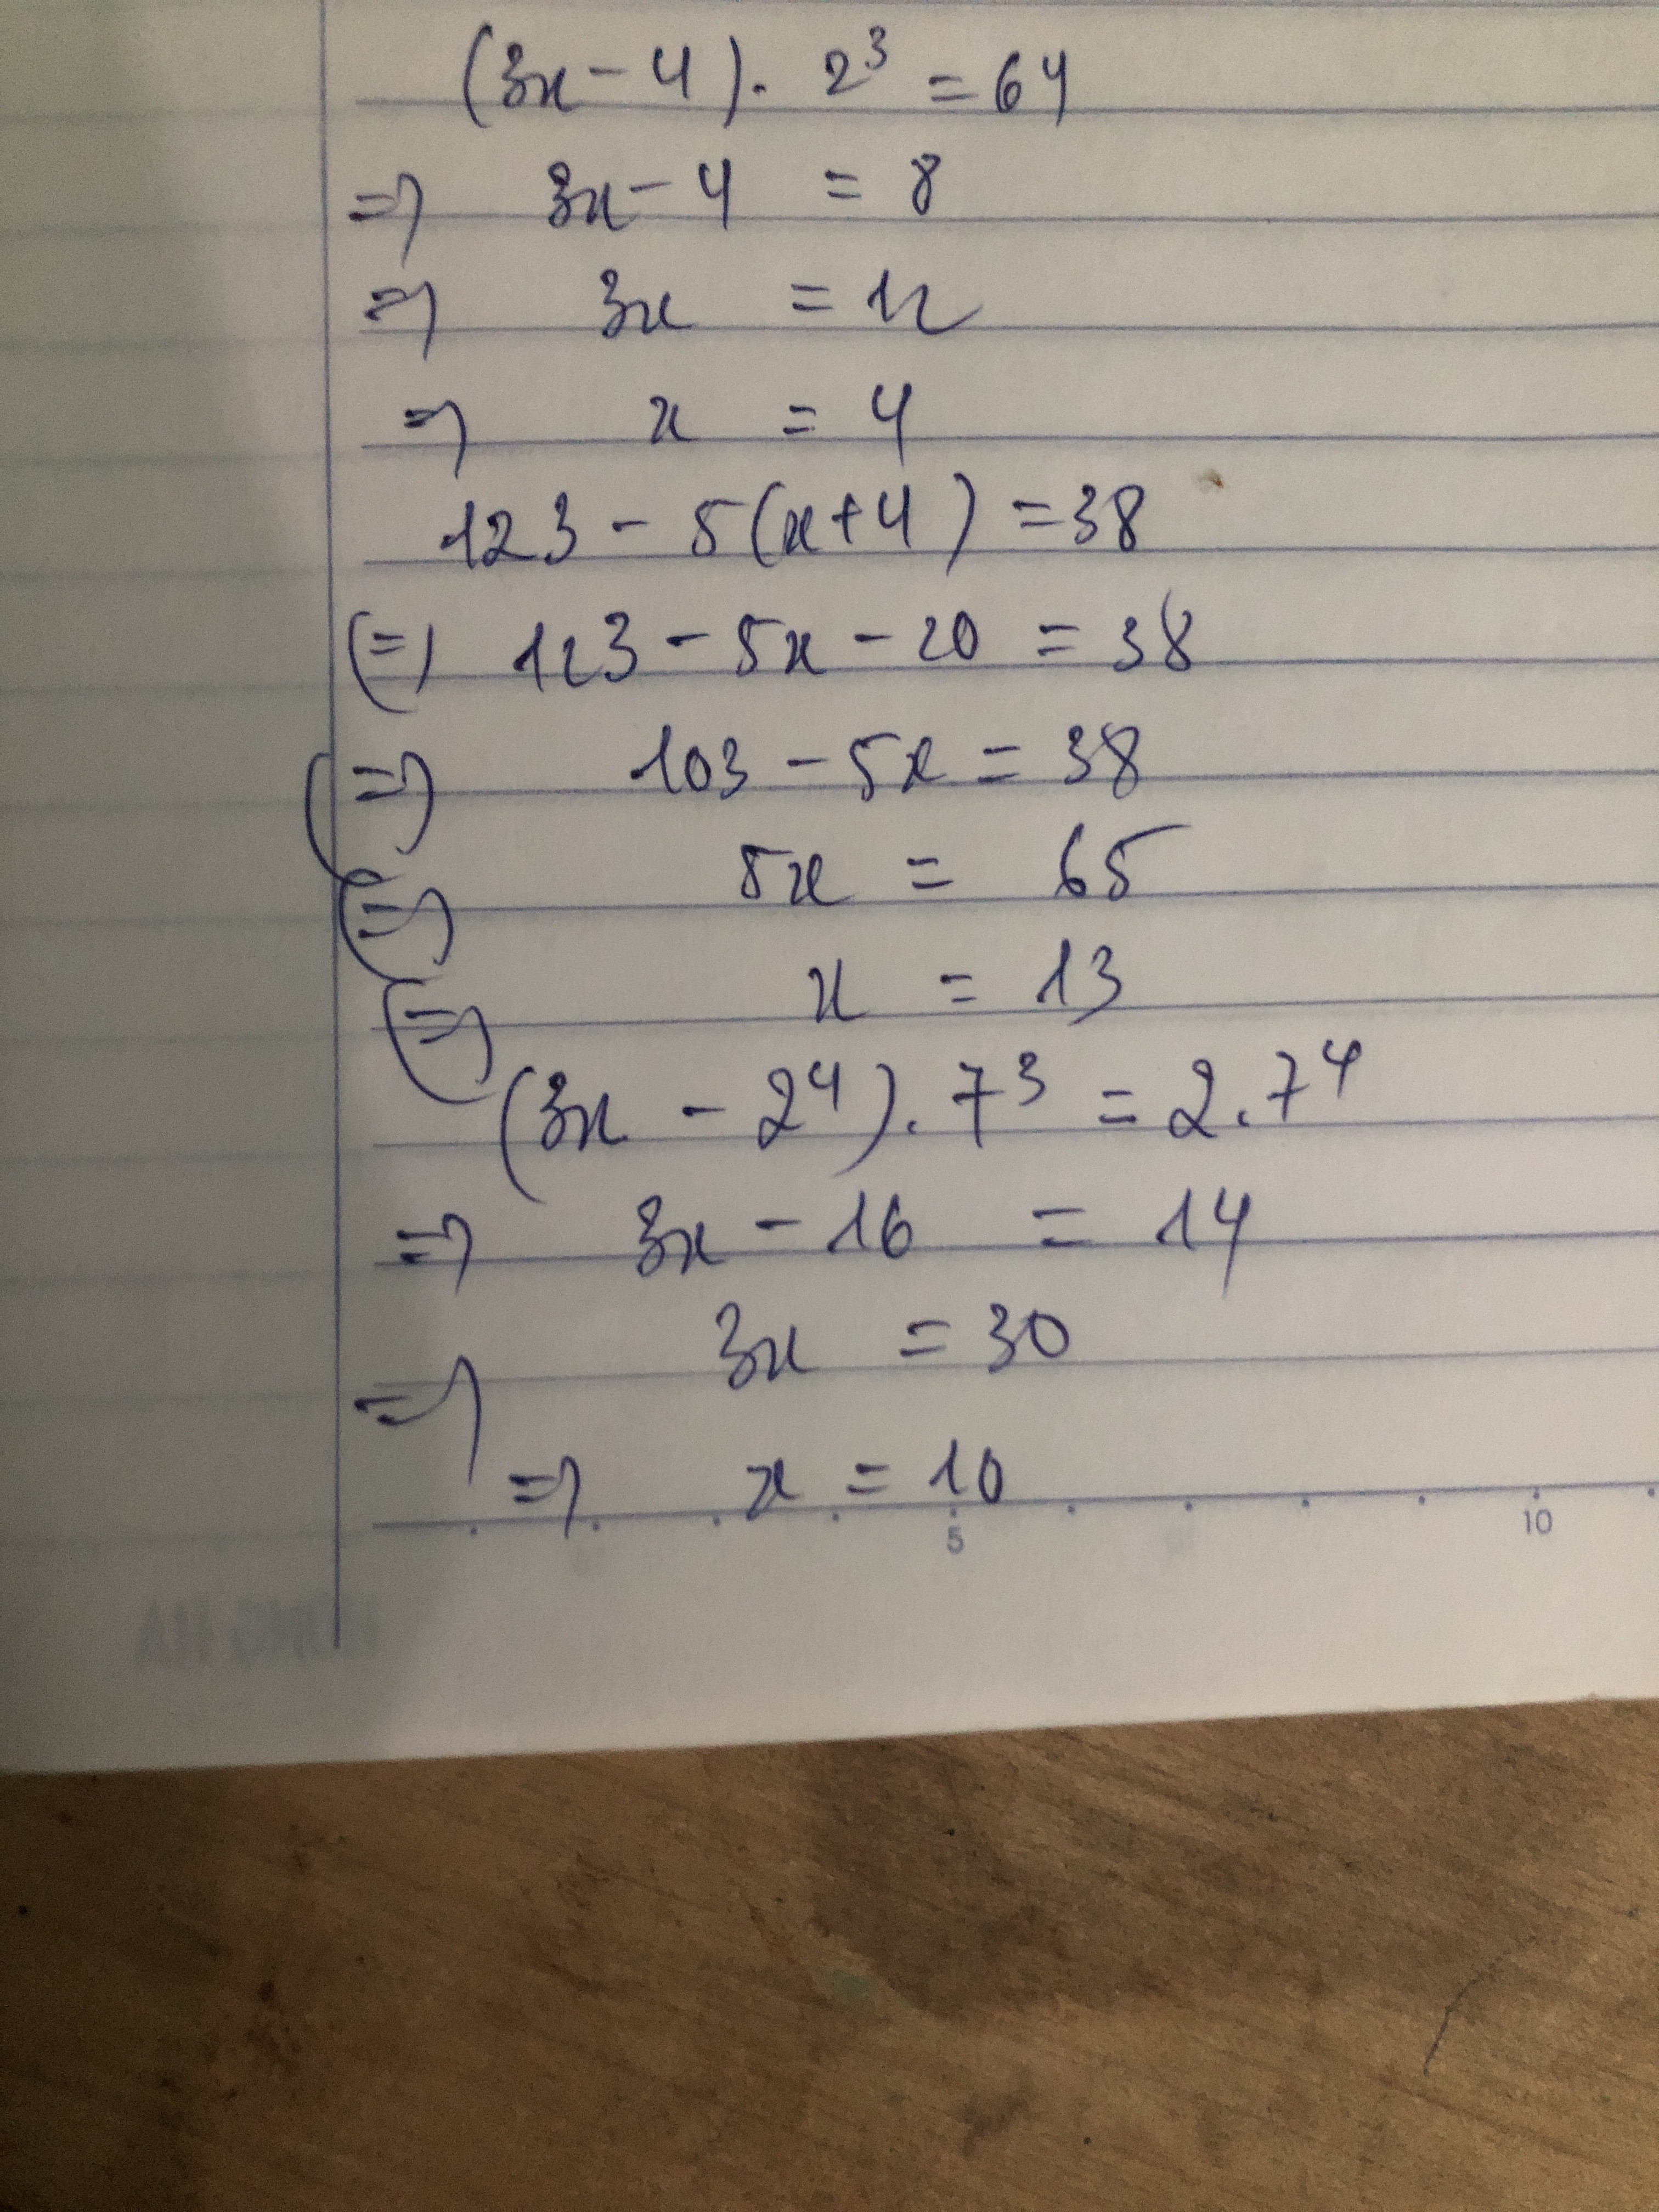 (3x - 4). 2³ = 64
=> 3x - 4 = 8
=> 3x = 12
=> x = 4
123 - 5(x+4) = 38
(=) 123 - 5x - 20 = 38
(=> 103 - 5x = 38
(=> 5x = 65
(=> x = 13
(3x - 2⁴). 7³ = 2.7⁴
=> 3x - 16 = 14
=> 3x = 30
=> x = 10
5 10